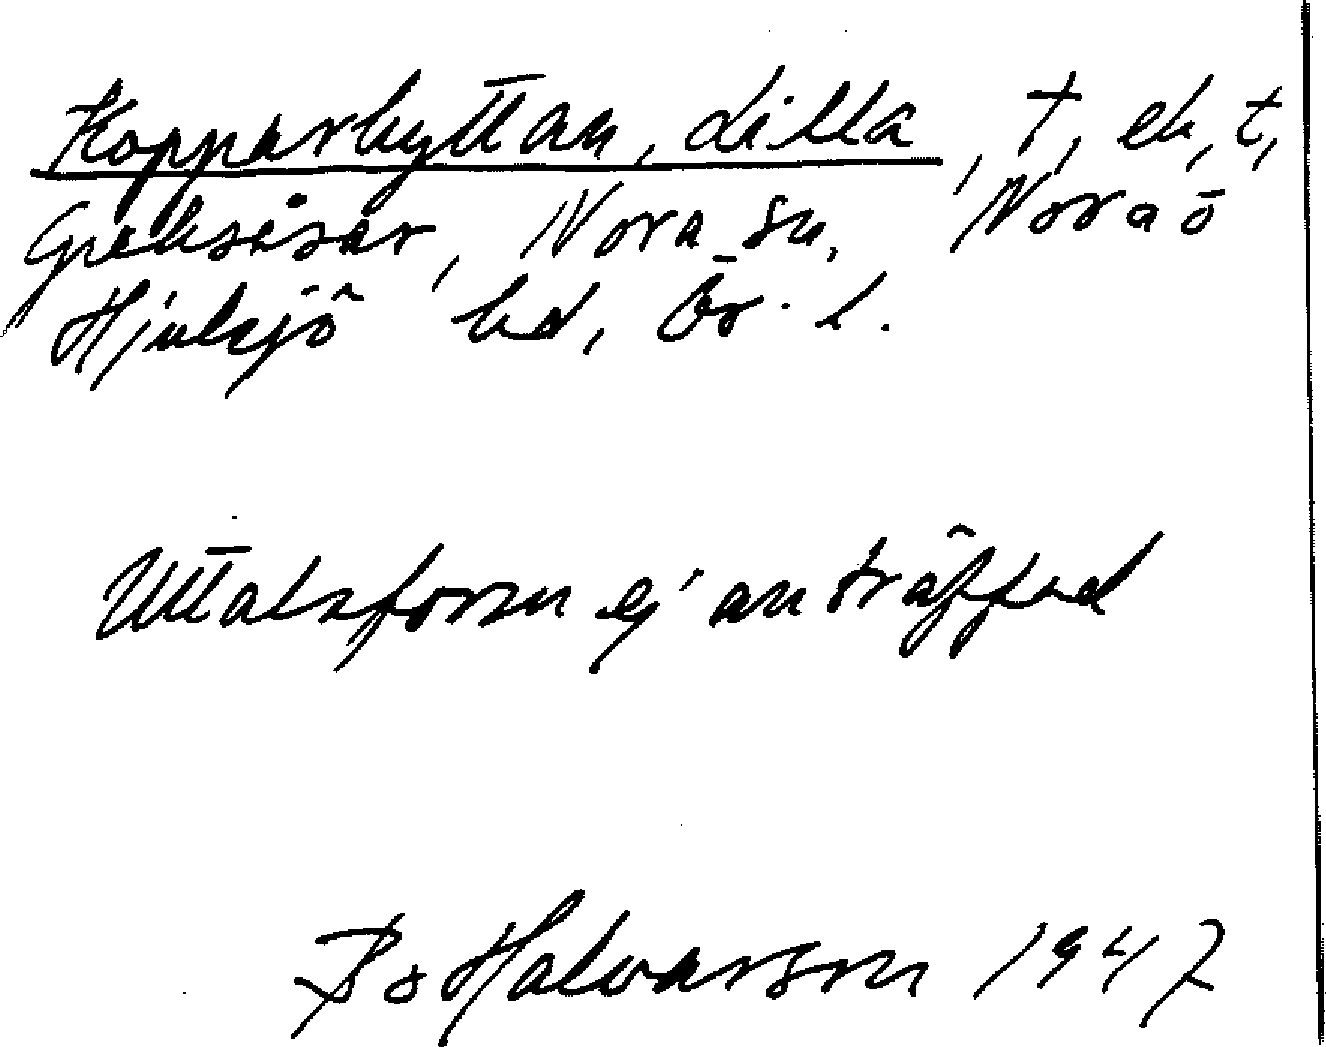 Kopparhyttan, Lilla, t, ek, t,
Greksåsar, Nora sn, Nora o
Hjulsjö hd, Ör. l.
Uttalsform ej anträffad
Bo Halvarson 1947